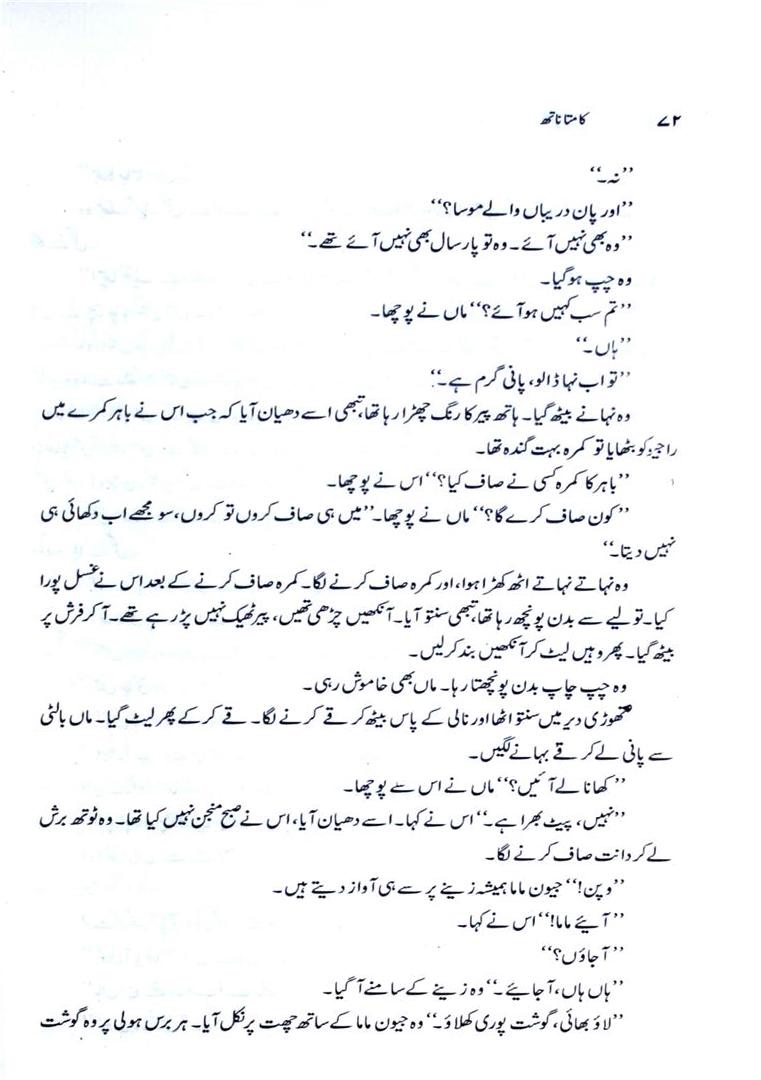 ۷۲ کامتاناتھ
’’نہ۔‘‘
’’اور پان دریباں والے موسا؟‘‘
’’وہ بھی نہیں آئے۔ وہ تو پارسال بھی نہیں آئے تھے۔‘‘
وہ چپ ہو گیا۔
’’تم سب کہیں ہو آئے؟‘‘ ماں نے پوچھا۔
’’ہاں۔‘‘
’’تو اب نہا ڈالو، پانی گرم ہے۔‘‘
وہ نہانے بیٹھ گیا۔ ہاتھ پیر کا رنگ چھڑا رہا تھا، تبھی اسے دھیان آیا کہ جب اس نے باہر کمرے میں
کو بٹھایا تو کمرہ بہت گندہ تھا۔
’’باہر کا کمرہ کسی نے صاف کیا؟‘‘ اس نے پوچھا۔
’’کون صاف کرے گا؟‘‘ ماں نے پوچھا۔ ’’میں ہی صاف کروں تو کروں، سو مجھے اب دکھائی ہی
نہیں دیتا۔‘‘
وہ نہاتے نہاتے اٹھ کھڑا ہوا، اور کمرہ صاف کرنے لگا۔ کمرہ صاف کرنے کے بعد اس نے غسل پورا
کیا۔ تولیے سے بدن پونچھ رہا تھا، تبھی سنتو آیا۔ آنکھیں چڑھی تھیں، پیر ٹھیک نہیں پڑ رہے تھے۔ آ کر فرش پر
بیٹھ گیا۔ پھر وہیں لیٹ کر آنکھیں بند کر لیں۔
وہ چپ چاپ بدن پونچھتا رہا۔ ماں بھی خاموش رہی۔
تھوڑی دیر میں سنتو اٹھا اور نالی کے پاس بیٹھ کر قے کرنے لگا۔ قے کر کے پھر لیٹ گیا۔ ماں بالٹی
سے پانی لے کر قے بہانے لگیں۔
’’کھانا لے آئیں؟‘‘ ماں نے اس سے پوچھا۔
’’نہیں، پیٹ بھرا ہے۔‘‘ اس نے کہا۔ اسے دھیان آیا، اس نے صبح منجن نہیں کیا تھا۔ وہ ٹوتھ برش
لے کر دانت صاف کرنے لگا۔
’’وپن!‘‘ جیون ماما ہمیشہ زینے پر سے ہی آواز دیتے ہیں۔
’’آیئے ماما!‘‘ اس نے کہا۔
’’آ جاؤں؟‘‘
’’ہاں ہاں، آ جایئے۔‘‘ وہ زینے کے سامنے آ گیا۔
’’لاؤ بھائی، گوشت پوری کھلاؤ۔‘‘ وہ جیون ماما کے ساتھ چھت پر نکل آیا۔ ہر برس ہولی پر وہ گوشت